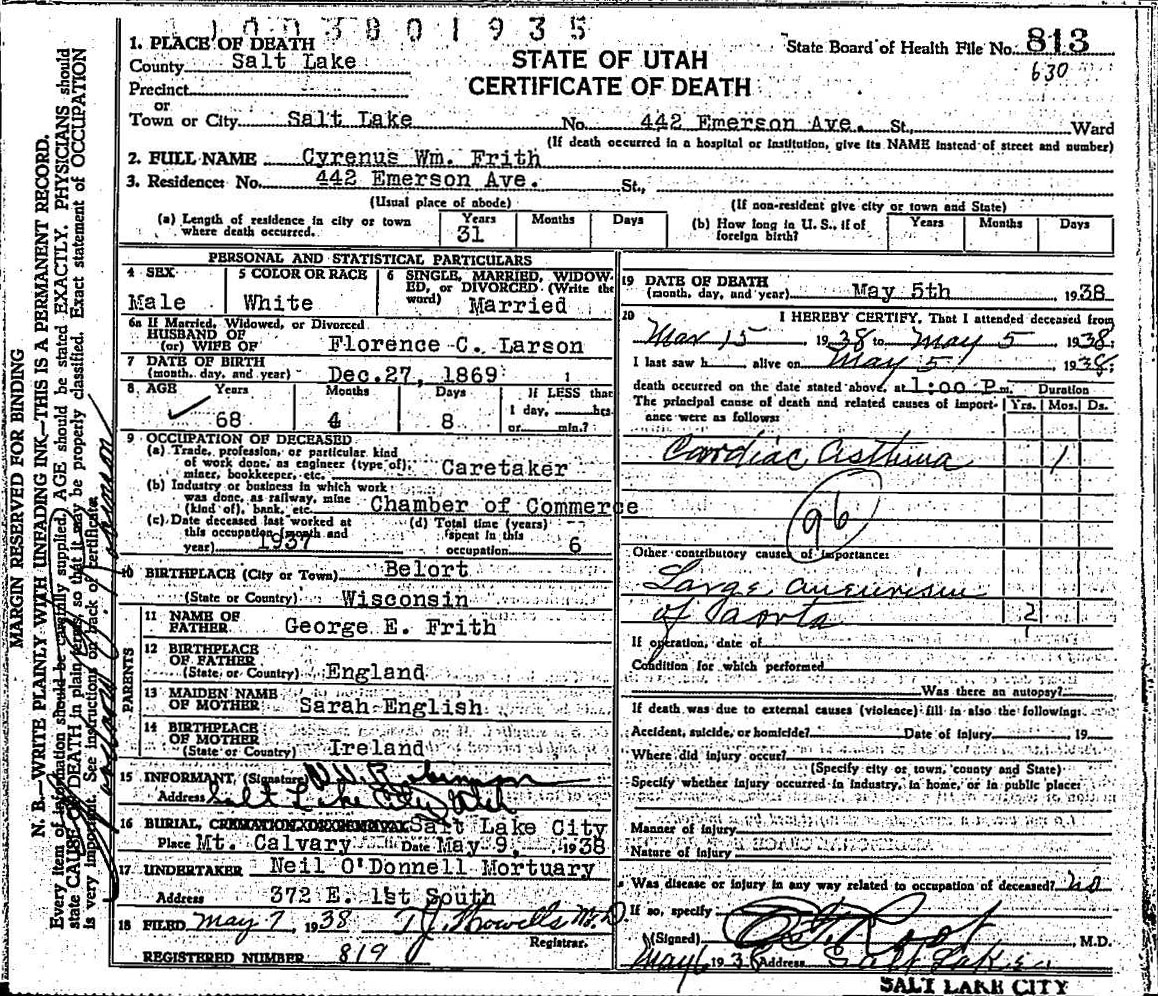 1003801935
1. PLACE OF DEATH
County Salt Lake
Precinct
or
Town or City Salt Lake No. 442 Emerson Ave. St., Ward
STATE OF UTAH
CERTIFICATE OF DEATH
State Board of Health File No. 813
630
(If death occurred in a hospital or institution, give its NAME instead of street and number)
2. FULL NAME Cyrenus Wm. Frith
3. Residence: No. 442 Emerson Ave. St.,
(Usual place of abode) (If non-resident give city or town and State)
(a) Length of residence in city or town where death occurred. Years 31 Months Days
(b) How long in U. S., if of foreign birth? Years Months Days
PERSONAL AND STATISTICAL PARTICULARS
4 SEX Male
5 COLOR OR RACE White
6 SINGLE, MARRIED, WIDOW-
ED, or DIVORCED (Write the
word) Married
6a If Married, Widowed, or Divorced
HUSBAND OF
(or) WIFE OF Florence C. Larson
7 DATE OF BIRTH
(month, day, and year) Dec. 27, 1869
8 AGE Years 68 Months 4 Days 8
If LESS than
1 day, hrs.
or min.?
9 OCCUPATION OF DECEASED
(a) Trade, profession, or particular kind
of work done, as engineer (type of),
miner, bookkeeper, etc. Caretaker
(b) Industry or business in which work
was done, as railway, mine
(kind of), bank, etc. Chamber of Commerce
(c) Date deceased last worked at
this occupation (month and
year) 1937
(d) Total time (years)
spent in this
occupation 6
10 BIRTHPLACE (City or Town) Belort
(State or Country) Wisconsin
PARENTS
11 NAME OF
FATHER George E. Frith
12 BIRTHPLACE
OF FATHER
(State or Country) England
13 MAIDEN NAME
OF MOTHER Sarah English
14 BIRTHPLACE
OF MOTHER
(State or Country) Ireland
15 INFORMANT, (Signature)
Address Salt Lake City Utah
16 BURIAL, CREMATION, OR REMOVAL Salt Lake City
Place Mt. Calvary Date May 9, 1938
17 UNDERTAKER Neil O'Donnell Mortuary
Address 372 E. 1st South
18 FILED May 7, 1938 T. J. Howells M.D.
Registrar.
REGISTERED NUMBER 819
19 DATE OF DEATH
(month, day, and year) May 5th, 1938
20 I HEREBY CERTIFY, That I attended deceased from
Mar 15 1938 to May 5 1938;
I last saw h alive on May 5 1938;
death occurred on the date stated above, at 1:00 P m. Duration
The principal cause of death and related causes of import-
ance were as follows: Yrs. Mos. Ds.
Cardiac asthma 1
96
Other contributory causes of importance:
Large aneurism
of aorta 2
If operation, date of
Condition for which performed
Was there an autopsy?
If death was due to external causes (violence) fill in also the following:
Accident, suicide, or homicide? Date of injury 19
Where did injury occur?
(Specify city or town, county and State)
Specify whether injury occurred in industry, in home, or in public place:
Manner of injury
Nature of injury
Was disease or injury in any way related to occupation of deceased? no
If so, specify
(Signed) Root, M.D.
May 6 1938 Address Salt Lake
SALT LAKE CITY
MARGIN RESERVED FOR BINDING
N. B.—WRITE PLAINLY WITH UNFADING INK—THIS IS A PERMANENT RECORD.
Every item of information should be carefully supplied. AGE should be stated EXACTLY. PHYSICIANS should
state CAUSE OF DEATH in plain terms, so that it may be properly classified. Exact statement of OCCUPATION
is very important. See instructions on back of certificate.